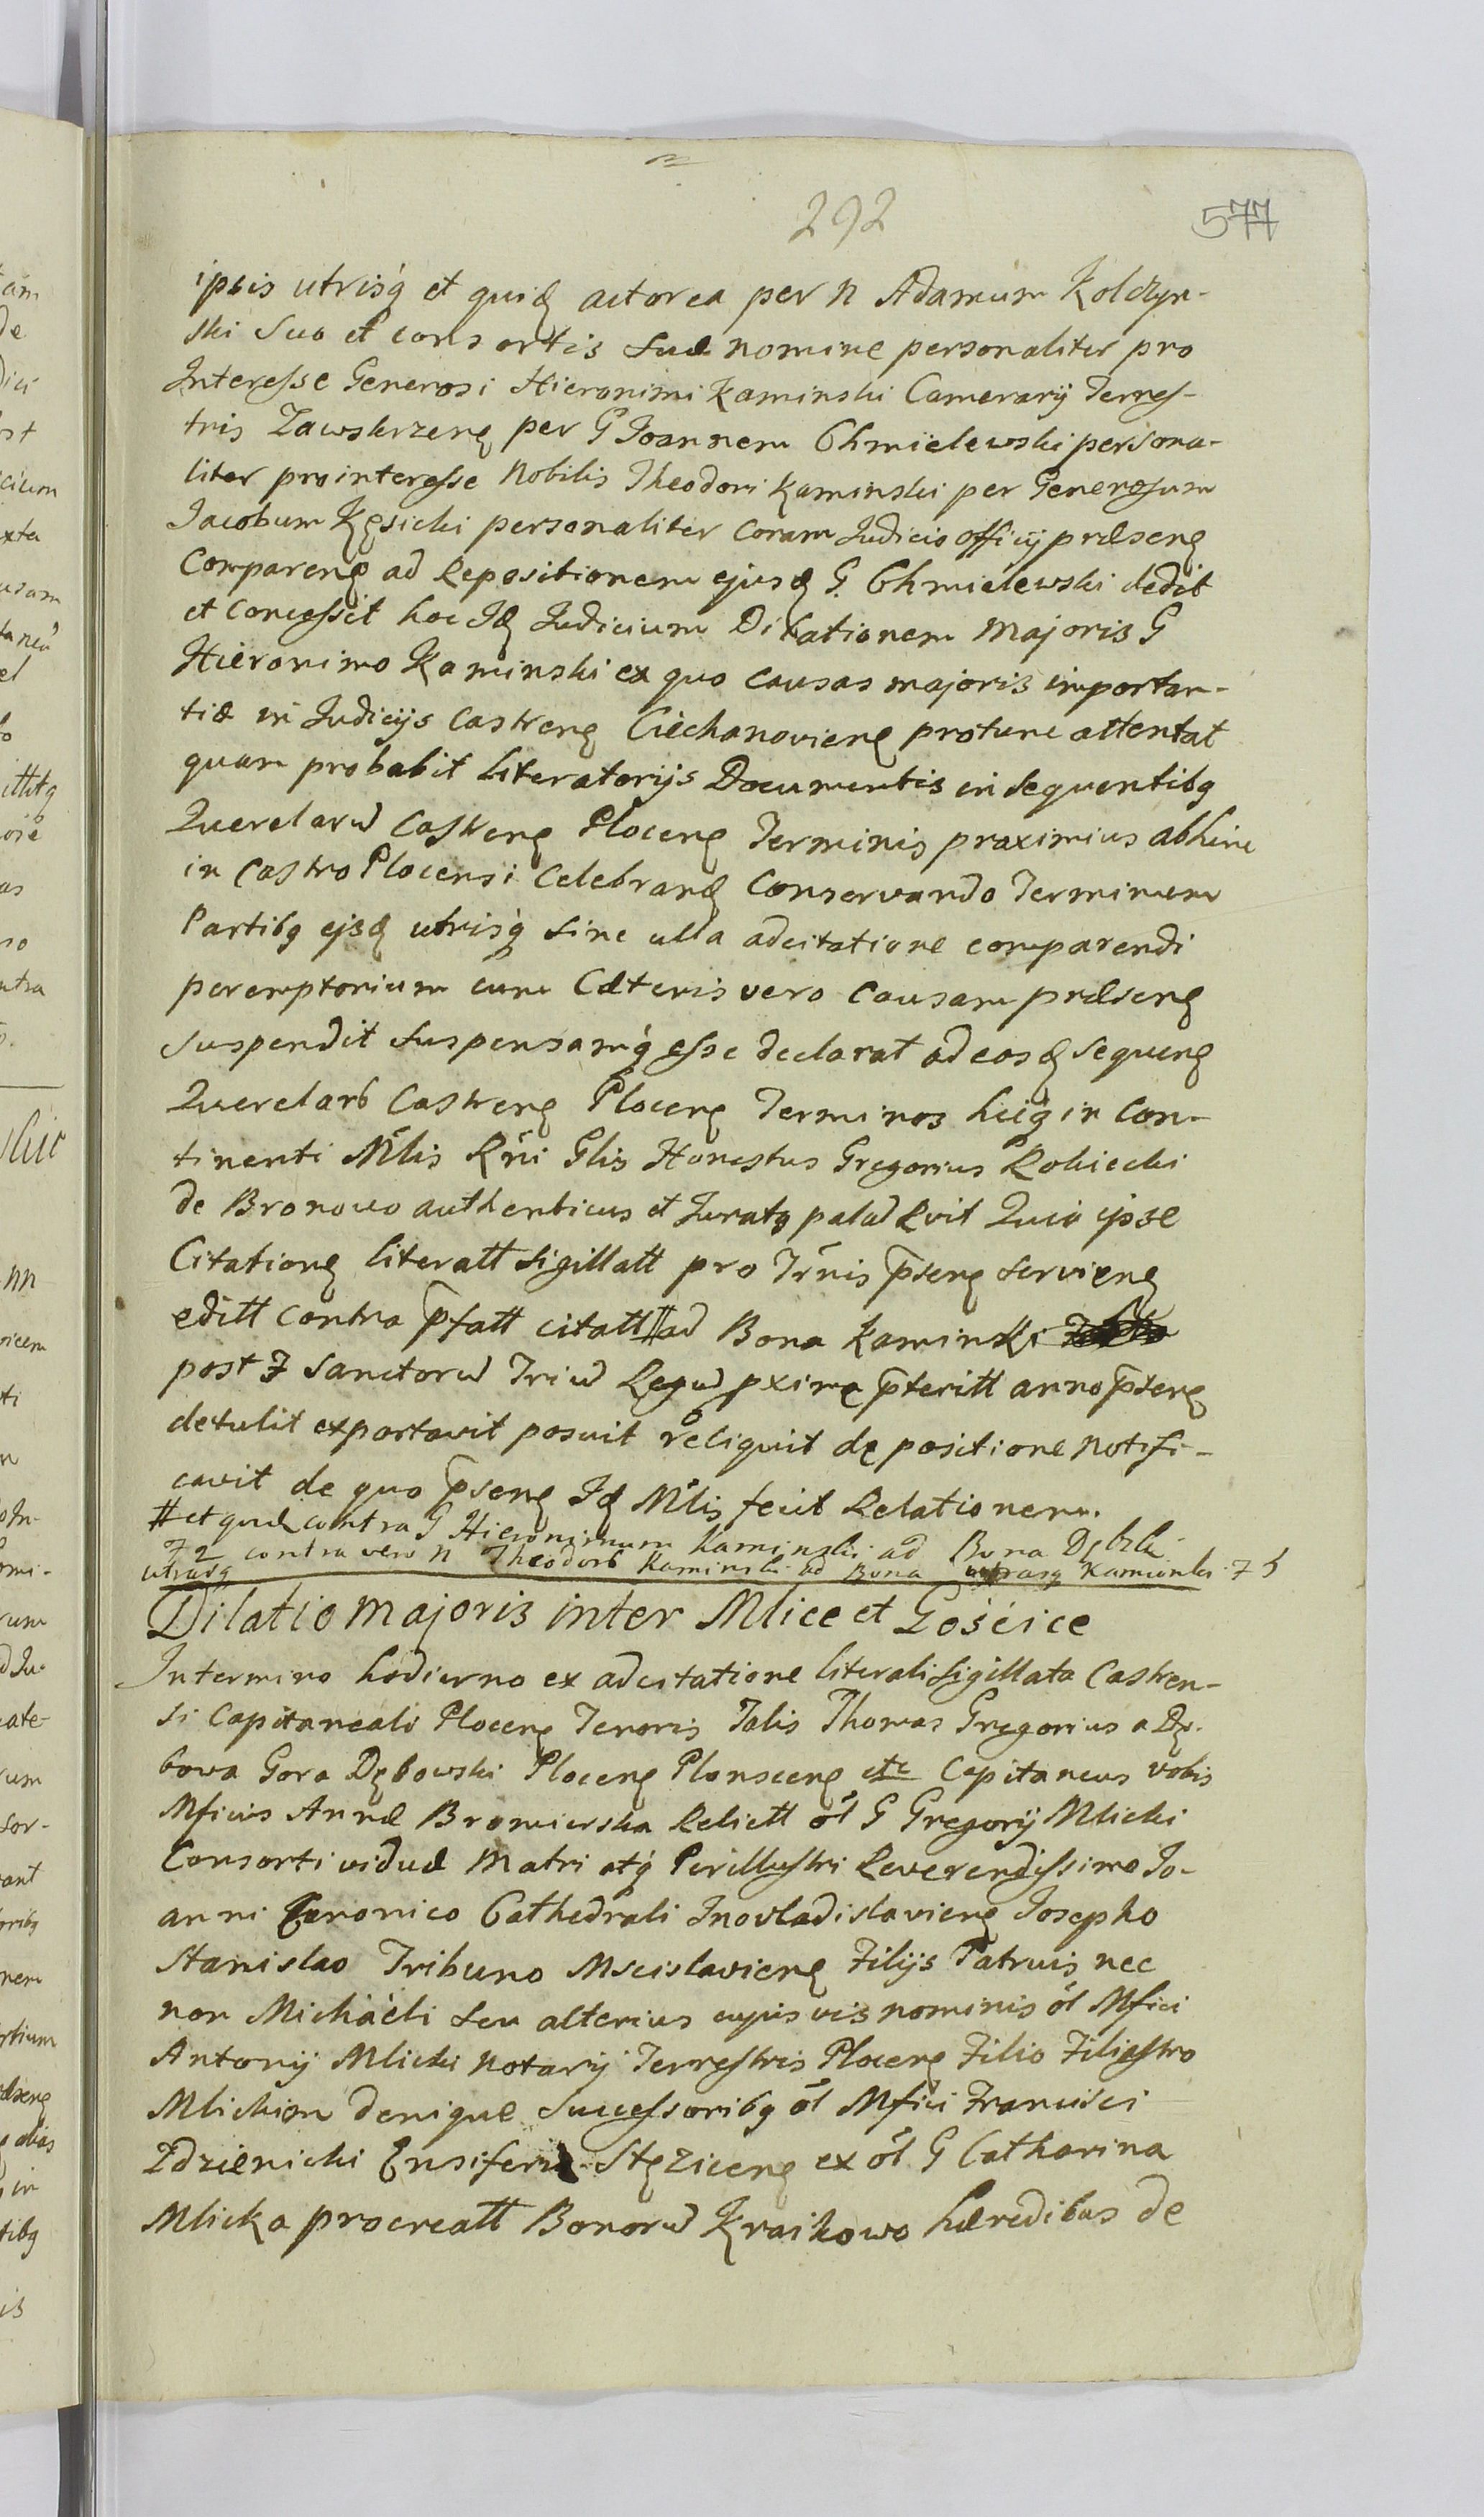 292
577
ipsis utrisq́ et quidꝫ actorea per N Adamum Kolczyn-
ski Suo et consortis Suæ nomine personaliter pro
Interesse Generosi Hieronimi Kaminski Camerarij Terres-
tris Zawskrzenꝫ per G Joannem Chmielewski persona-
liter pro interesse Nobilis Theodori Kaminski per Generosum
Jacobum Kęsicki personaliter coram Judicio officij præsenꝫ
Comparenꝫ ad Repositionem ejusdꝫ G. Chmielewski dedit
et concessit hoc Idꝫ Judicium Dilationem Majoris G
Hieronimo Kaminski ex quo causas majoris importan-
tiæ in Judicijs Castrenꝫ Ciechanovienꝫ protunc attentat
quam probabit Literatorijs Documentis in Sequentibꝫ
Querelarū Castrenꝫ Plocenꝫ Terminis proximius abhinc
in Castro Plocensi Celebrandꝫ Conservando Terminum
Partibꝫ ejsdꝫ utrisq́ Sine ulla adcitatione comparendi
peremptorium cum Cæteris vero causam præsenꝫ
Suspendit Suspensamq́ esse declarat ad eosdꝫ sequenꝫ
Querelarū Castrenꝫ Plocenꝫ Terminos huicq́ in con-
tinenti Mlis Rni Glis Honestus Gregorius Rokicki
de Bronowo authenticus et Juratꝫ palā Rvit Quia ipse
Citationꝫ literatt Sigillatt pro Trnis pñsenꝫ Servienꝫ
editt contra pfatt citatt # ad Bona Kaminski
post F Sanctorū Triū Regū pxime pteritt anno pñsenꝫ
detulit exportavit posuit reliquit de positione notifi-
cavit de quo pñsenꝫ Idꝫ Mlis fecit Relationem.
# et quidꝫ contra G Hieronimum Kaminski ad Bona Dębsk
F 2 contra vero N Theodorū Kaminski ad Bona Kamionki F 5
utrasq
Dilatio Majoris inter Mlice et Gośćice
In termino hodierno ex adcitatione literali Sigillata Castren-
si Capitaneali Plocenꝫ Tenoris Talis Thomas Gregorius a Dę-
bowa Gora Dębowski Plocenꝫ Plonscenꝫ etc Capitaneus vobis
Mficis Annæ Bromierska Relictt ol G Gregorij Mlicki
Consorti viduæ Matri atq́ Perillustri Reverendissimo Jo-
anni Canonico Cathedrali Inovladislavienꝫ Josepho
Stanislao Tribuno Mscislavienꝫ Filijs Patruis nec
non Michaeli Seu alterius cujusvis nominis ol Mfici
Antonij Mlicki Notarij Terrestris Plocenꝫ Filio Filiastro
Mlickim denique Successoribꝫ ol Mfici Francisci
Zdzienicki Ensiferi Stęzicenꝫ ex ol G Catharina
Mlicka procreatt Bonorū Kraikowo hæredibus de